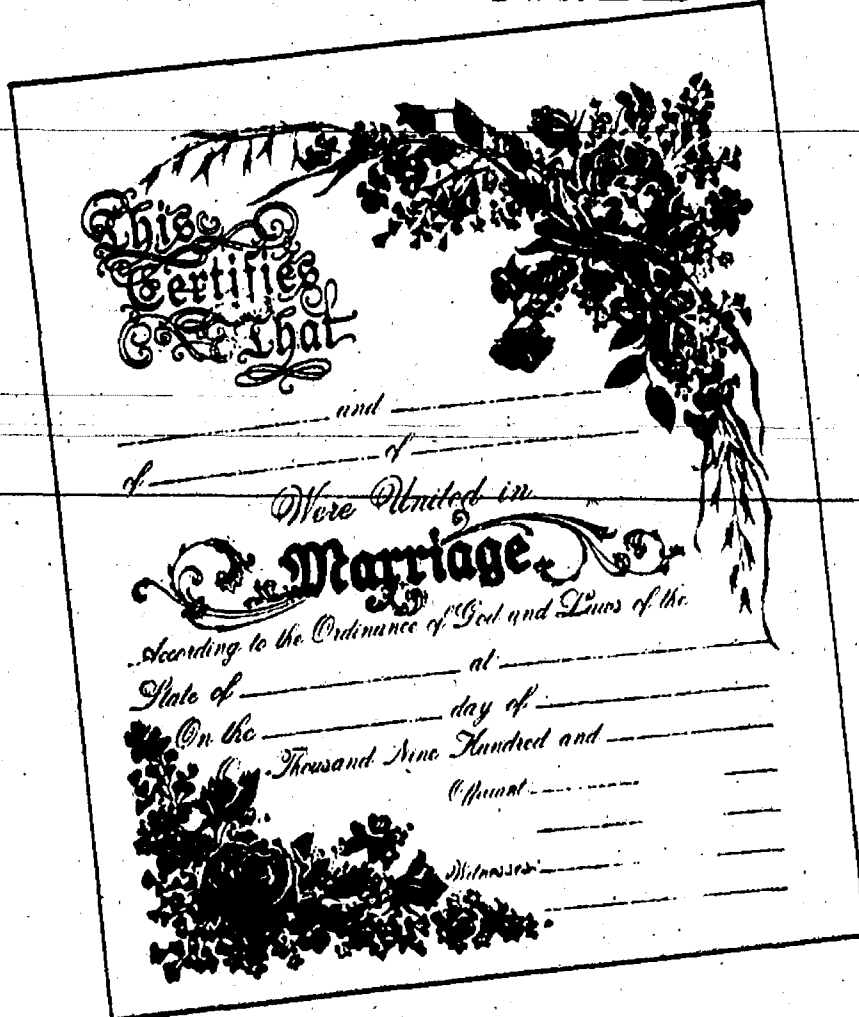 This
Certifies
that
and
of of
Were United in
Marriage
According to the Ordinance of God and Laws of the
State of at
On the day of
Thousand Nine Hundred and
Officiant
Witnesses